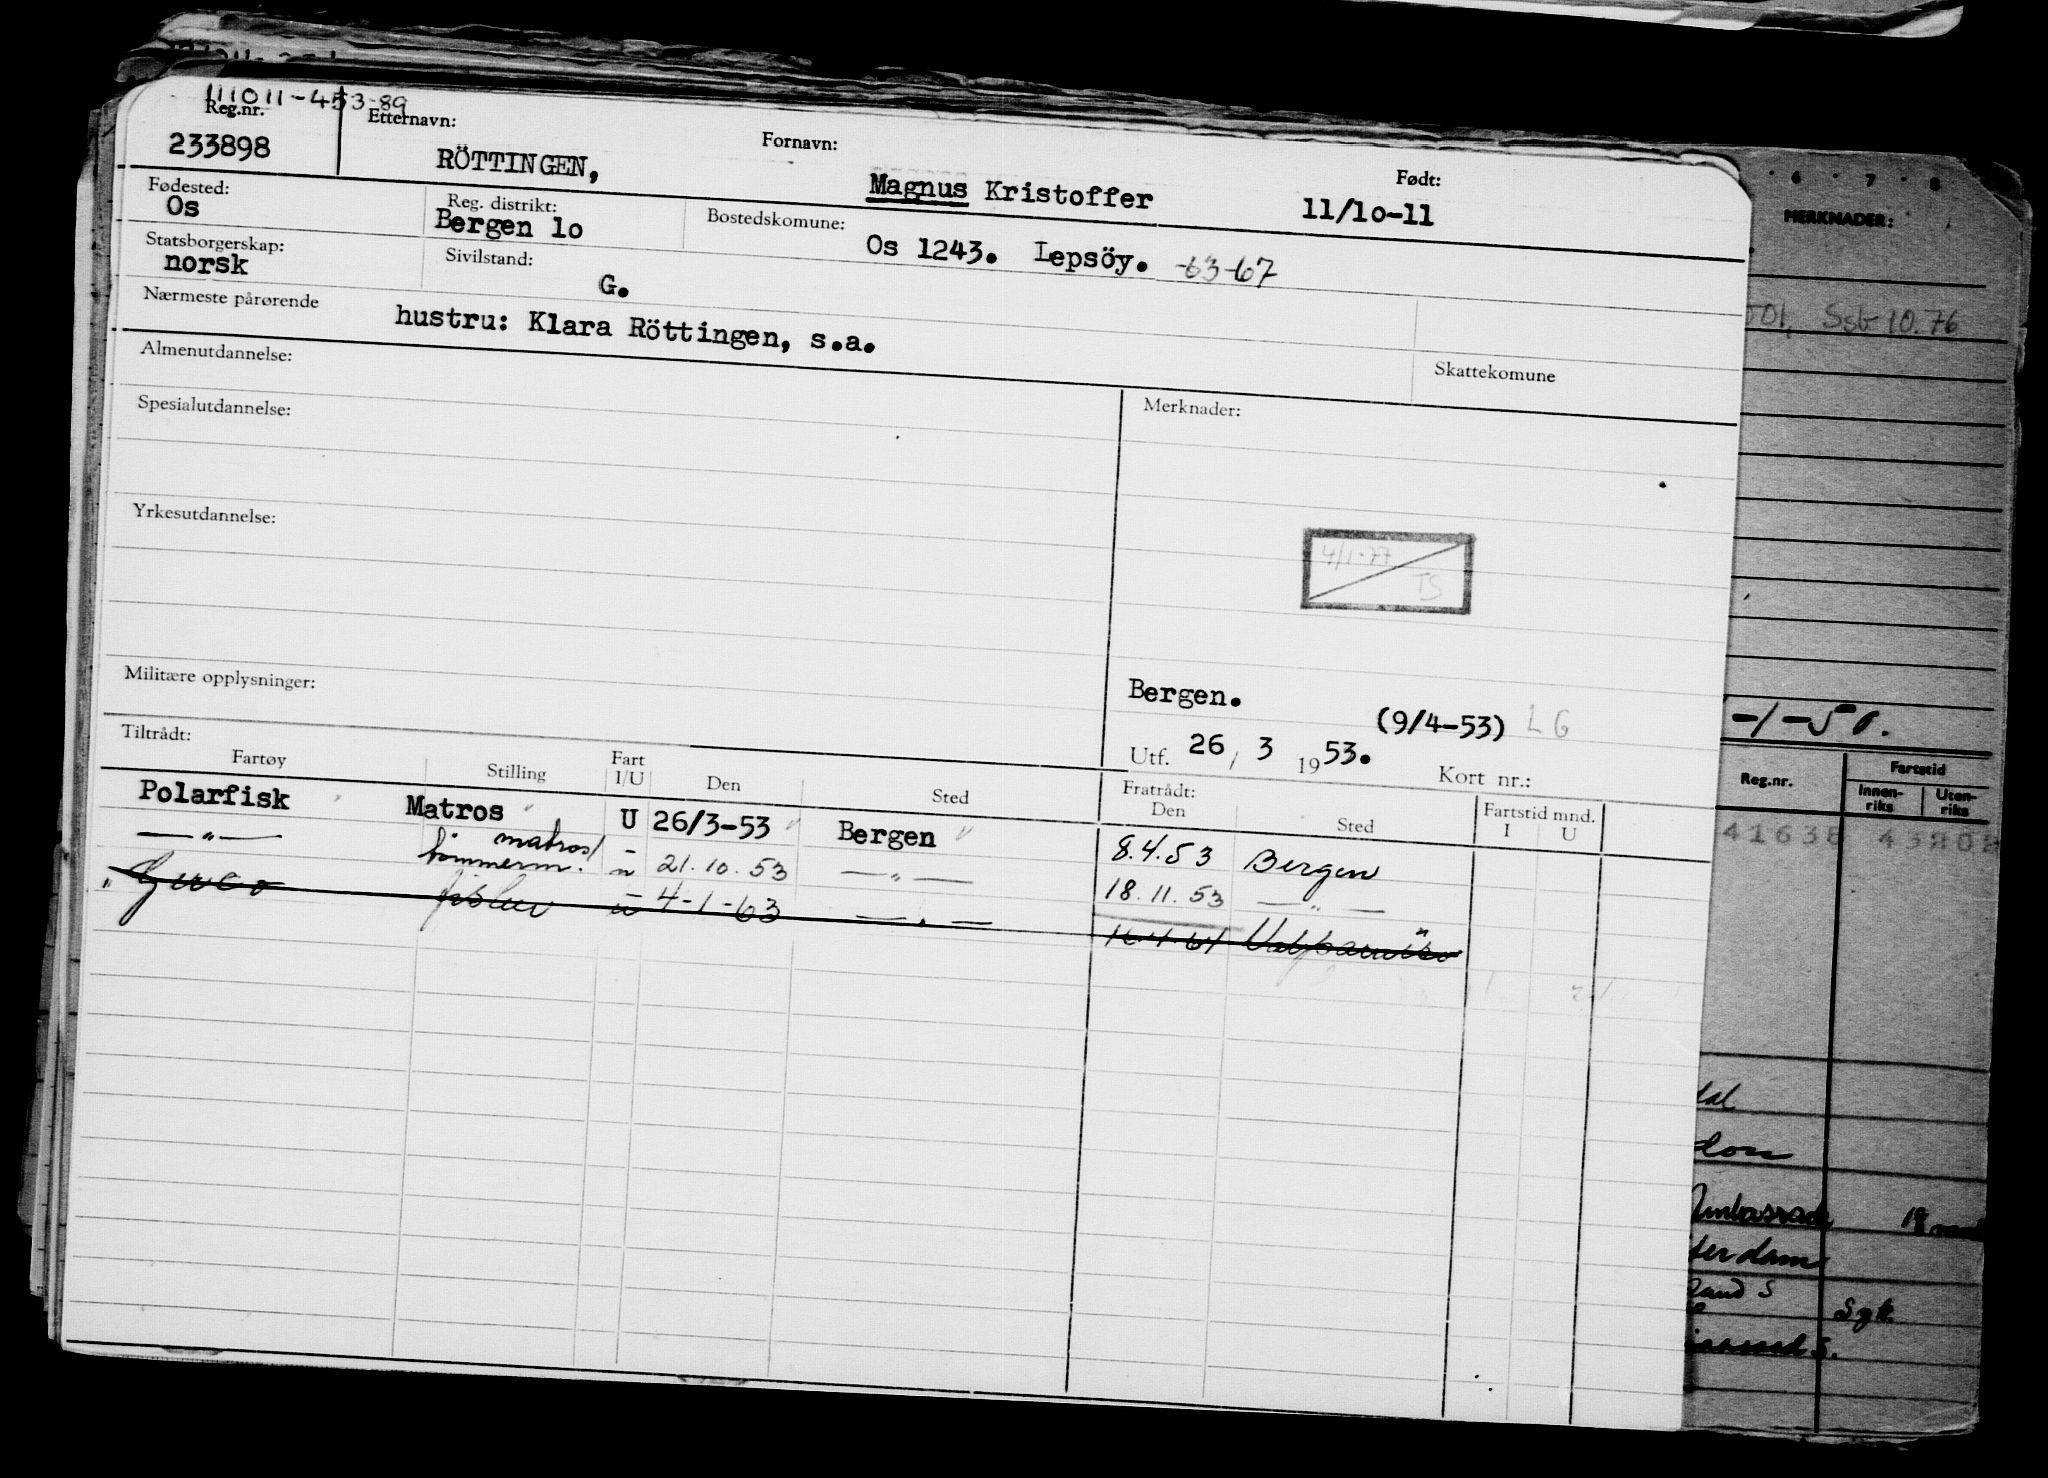 111011-453-89
Reg.nr. Etternavn: Fornavn: Født:
233898 RÖTTINGEN, Magnus Kristoffer 11/10-11
Fødested: Reg. distrikt: Bostedskomune:
Os Bergen 10 Os 1243. Lepsöy. -63-67
Statsborgerskap: Sivilstand:
norsk G.
Nærmeste pårørende
hustru: Klara Röttingen, s.a.
Almenutdannelse: Skattekomune
Spesialutdannelse: Merknader:
Yrkesutdannelse:
4/1-77
TS
Militære opplysninger:
Bergen. (9/4-53) LG
Utf. 26 / 3 1953. Kort nr.:
Tiltrådt: Fratrådt:
Fartøy Stilling Fart I/U Den Sted Den Sted Fartstid mnd. I U
Polarfisk Matros U 26/3-53 Bergen 8.4.53 Bergen
—"— matros/ tømmerm. u 21.10.53 —"— 18.11.53 —"—
" fisker u 4-1-63 —"—
6 7 8
MERKNADER:
Ssb 10.76
-1-50.
Reg.nr. Fartstid
Innen-riks Uten-riks
41638 43202
dal
don
terdam
land S
Sgk.